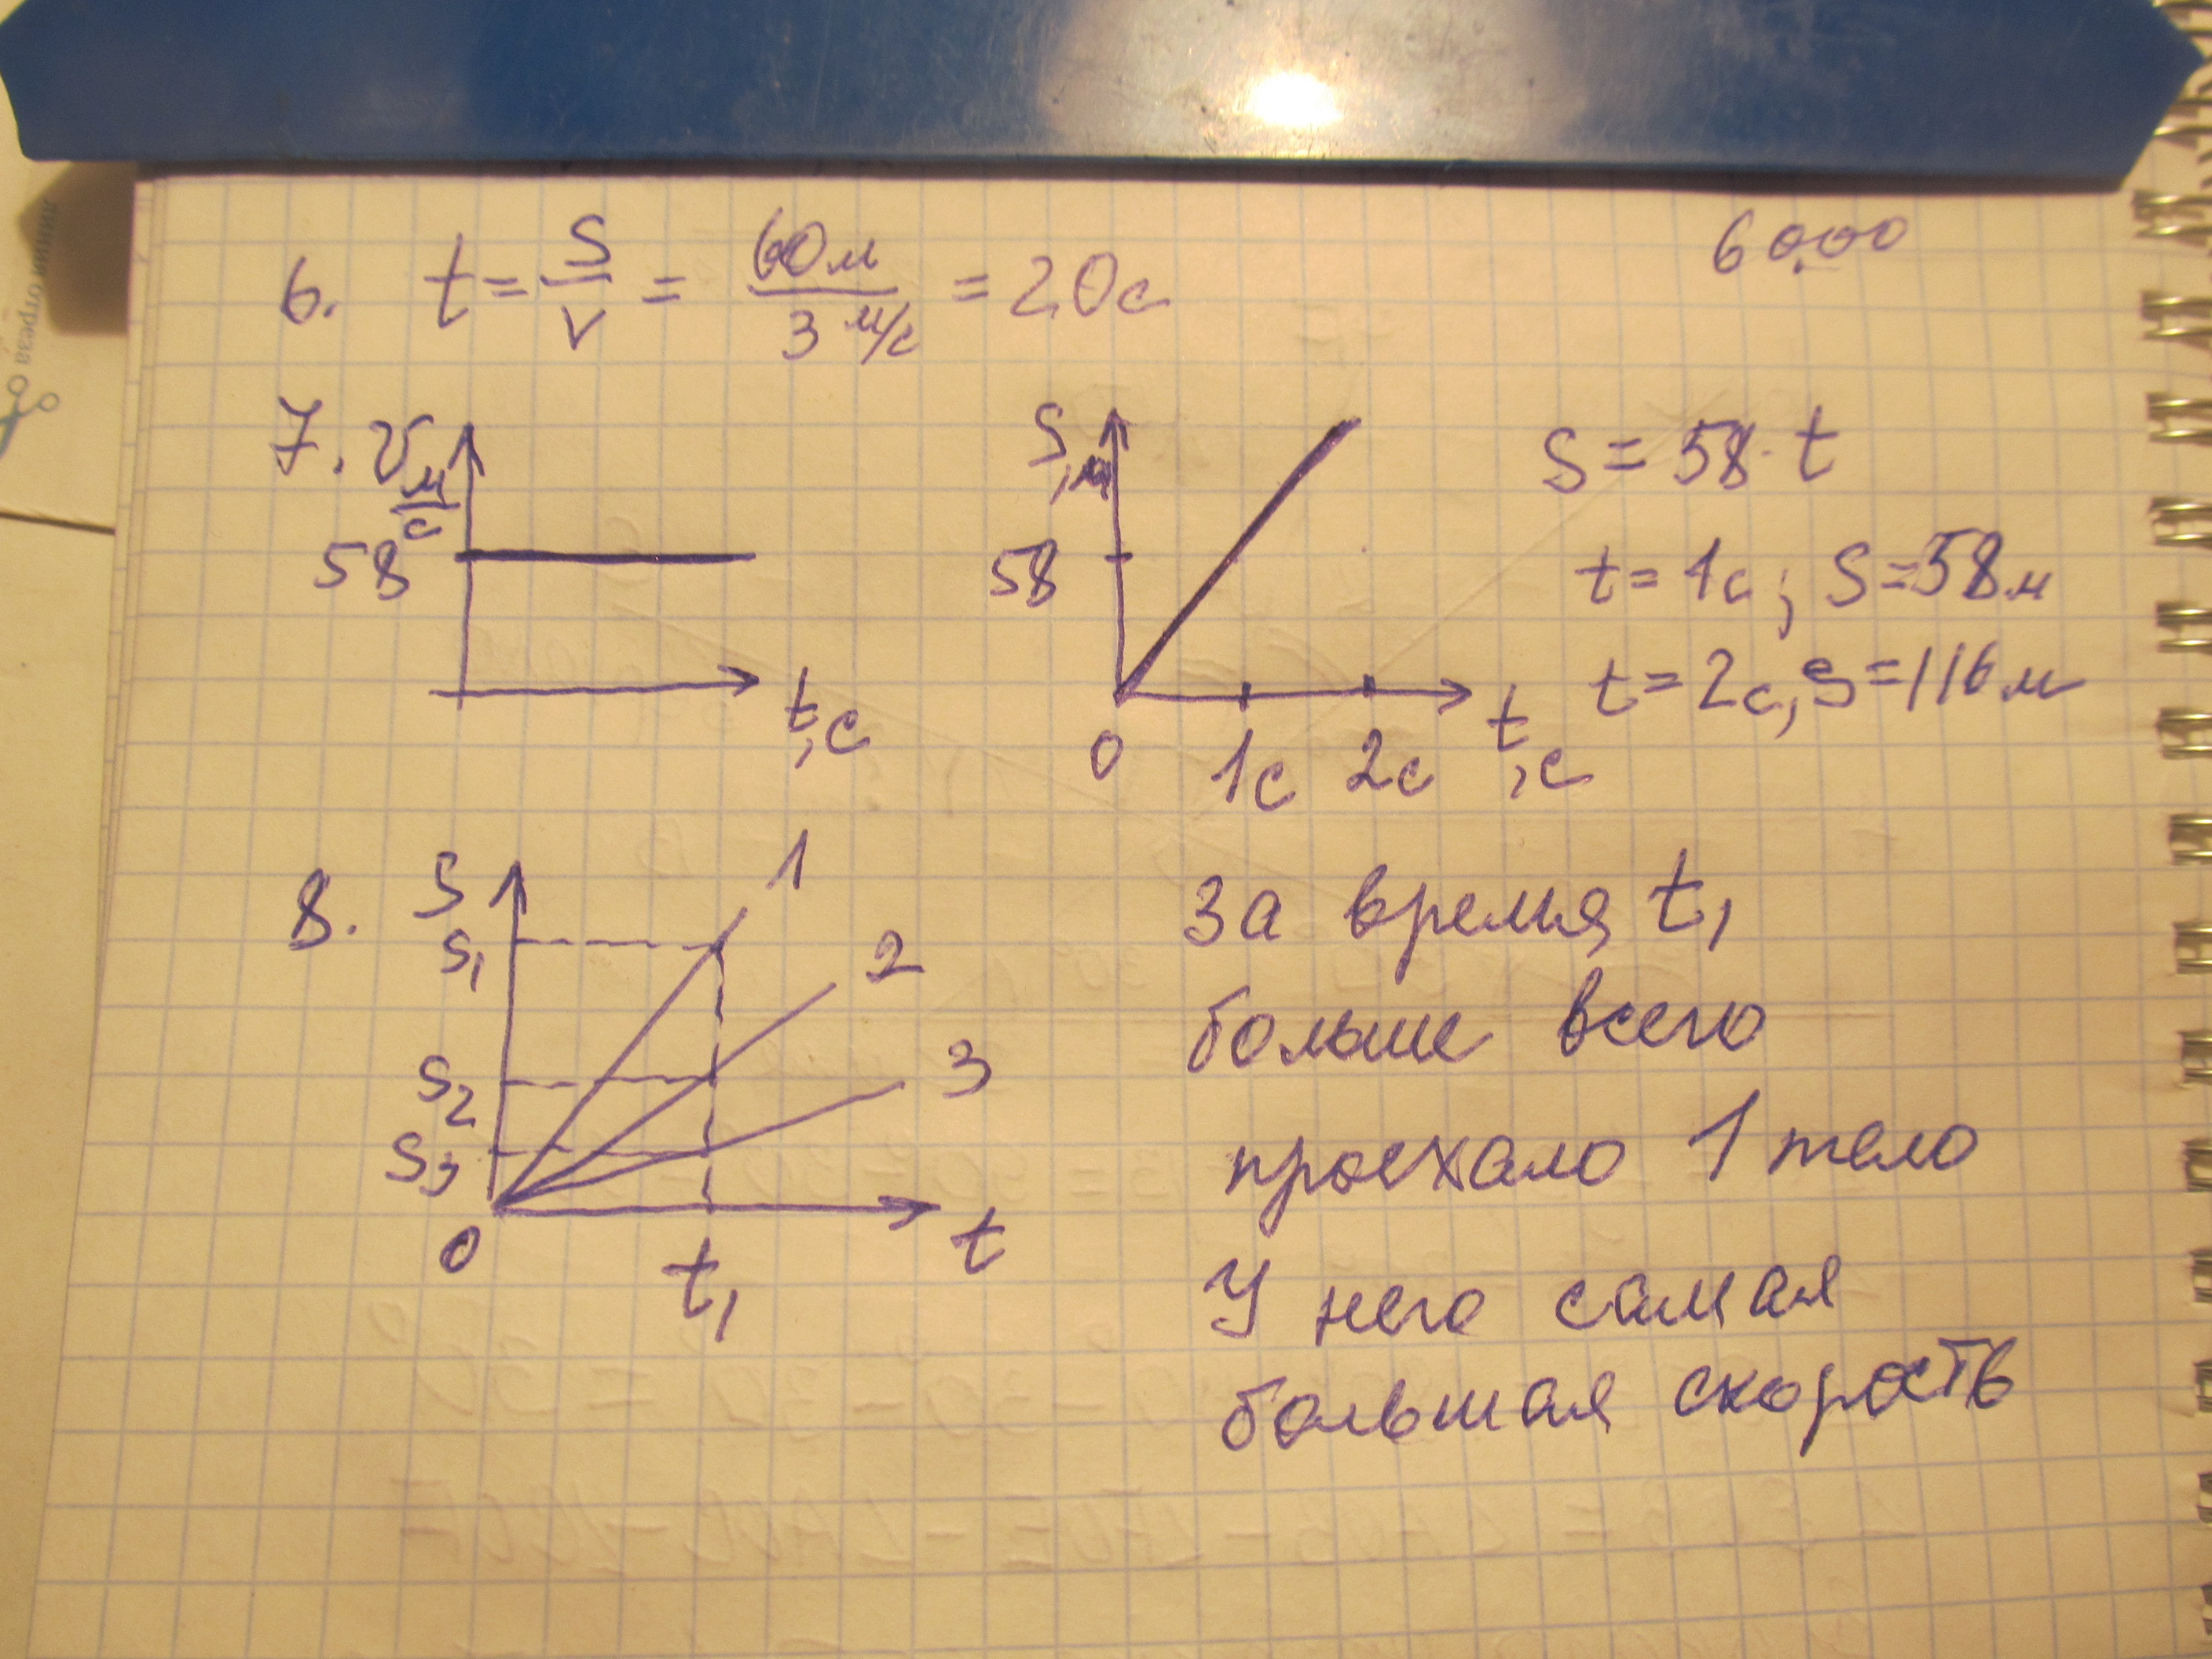 60,00
6. t = S/v = 60м / 3 м/с = 20с
7. v м/с
58
t,с
S,м
58
0 1с 2с t,с
S = 58 · t
t = 1с; S = 58м
t = 2с, S = 116м
8. S
S₁
S₂
S₃
0
t₁
t
1
2
3
За время t₁
больше всего
проехало 1 тело
У него самая
большая скорость